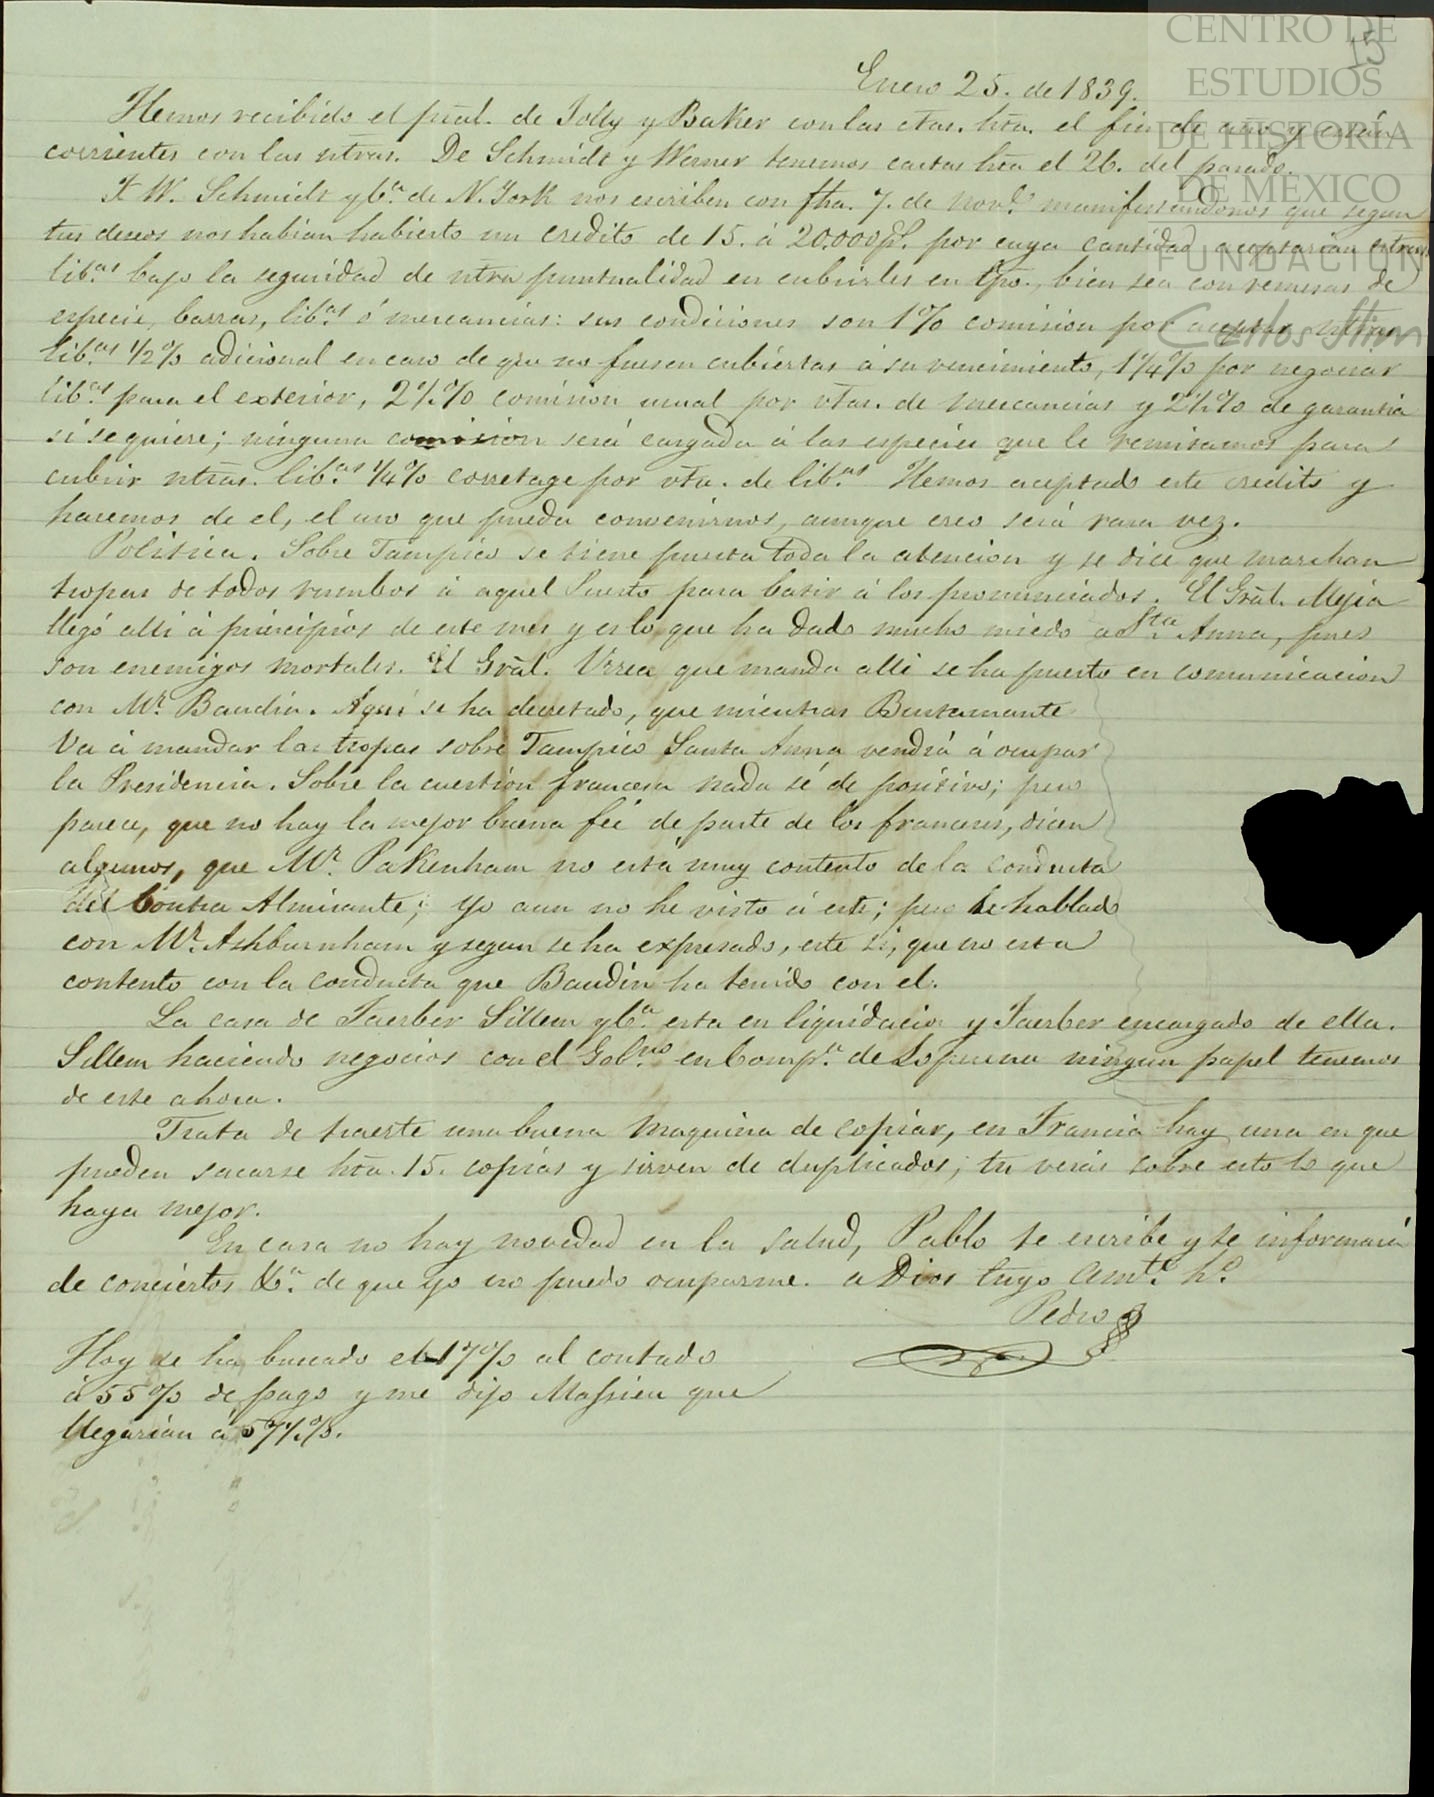 CENTRO DE
ESTUDIOS
DE HISTORIA
DE MÉXICO
FUNDACIÓN
Carlos Slim
15
Enero 25. de 1839.
Hemos recibido el pral. de Jolly y Baker con las ctas. hta. el fin de año y están
corrientes con las ntras. De Schmidt y Werner tenemos cartas hta el 26. del pasado.
F. W. Schmidt y Ca. de N. York nos escriben con fha. 7. de novе. manifestandonos que segun
tus deseos nos habian habierto un credito de 15. á 20.000 ps. por cuya cantidad aceptarian ntras
lib.as bajo la seguridad de ntra puntualidad en cubrirles en tpo., bien sea con remesas de
especie, barras, lib.as ó mercancias: sus condiciones son 1% comision por aceptar ntras
lib.as 1/2% adicional en caso de que no fuesen cubiertas á su vencimiento, 1 1/4% por negociar
lib.as para el exterior, 2 1/2% comision usual por vtas. de mercancias y 2 1/2% de garantia
si se quiere; ninguna comision será cargada á las especies que le remitamos para
cubrir ntras. lib.as 1/4% corretage por vta. de lib.as Hemos aceptado este credito y
haremos de el, el uso que pueda convenirnos, aunque creo será rara vez.
Politica. Sobre Tampico se tiene puesta toda la atencion y se dice que marchan
tropas de todos rumbos á aquel Puerto para batir á los pronunciados. El Gral. Mejia
llegó alli á principios de este mes y es lo que ha dado mucho miedo a Sta. Anna, pues
son enemigos mortales. El Gral. Urrea que manda alli se ha puesto en comunicacion
con Mr. Baudin. Aqui se ha decretado, que mientras Bustamante
va á mandar las tropas sobre Tampico Santa Anna vendrá á ocupar
la Presidencia. Sobre la cuestion francesa nada sé de positivo; pero
parece, que no hay la mejor buena feé de parte de los franceses, dicen
algunos, que Mr. Pakenham no esta muy contento de la conducta
del Contra Almirante; Yo aun no he visto á este; pero he hablado
con Mr. Ashburnham y segun se ha expresado, este si, que no esta
contento con la conducta que Baudin ha tenido con el.
La casa de Faerber Sillem y Ca. esta en liquidacion y Faerber encargado de ella.
Sillem haciendo negocios con el Gob.no en Comp.a de Loperena ningun papel tenemos
de este ahora.
Trata de traerte una buena maquina de copiar, en Francia hay una en que
pueden sacarse hta. 15. copias y sirven de duplicados; tu verás sobre esto lo que
haya mejor.
En casa no hay novedad en la salud, Pablo te escribe y te informará
de conciertos &a. de que yo no puedo ocuparme. a Dios tuyo amte. ho.
Pedro
Hoy se ha buscado el 17% al contado
á 55% de pago y me dijo Massieu que
llegarian á 57 1/2%.